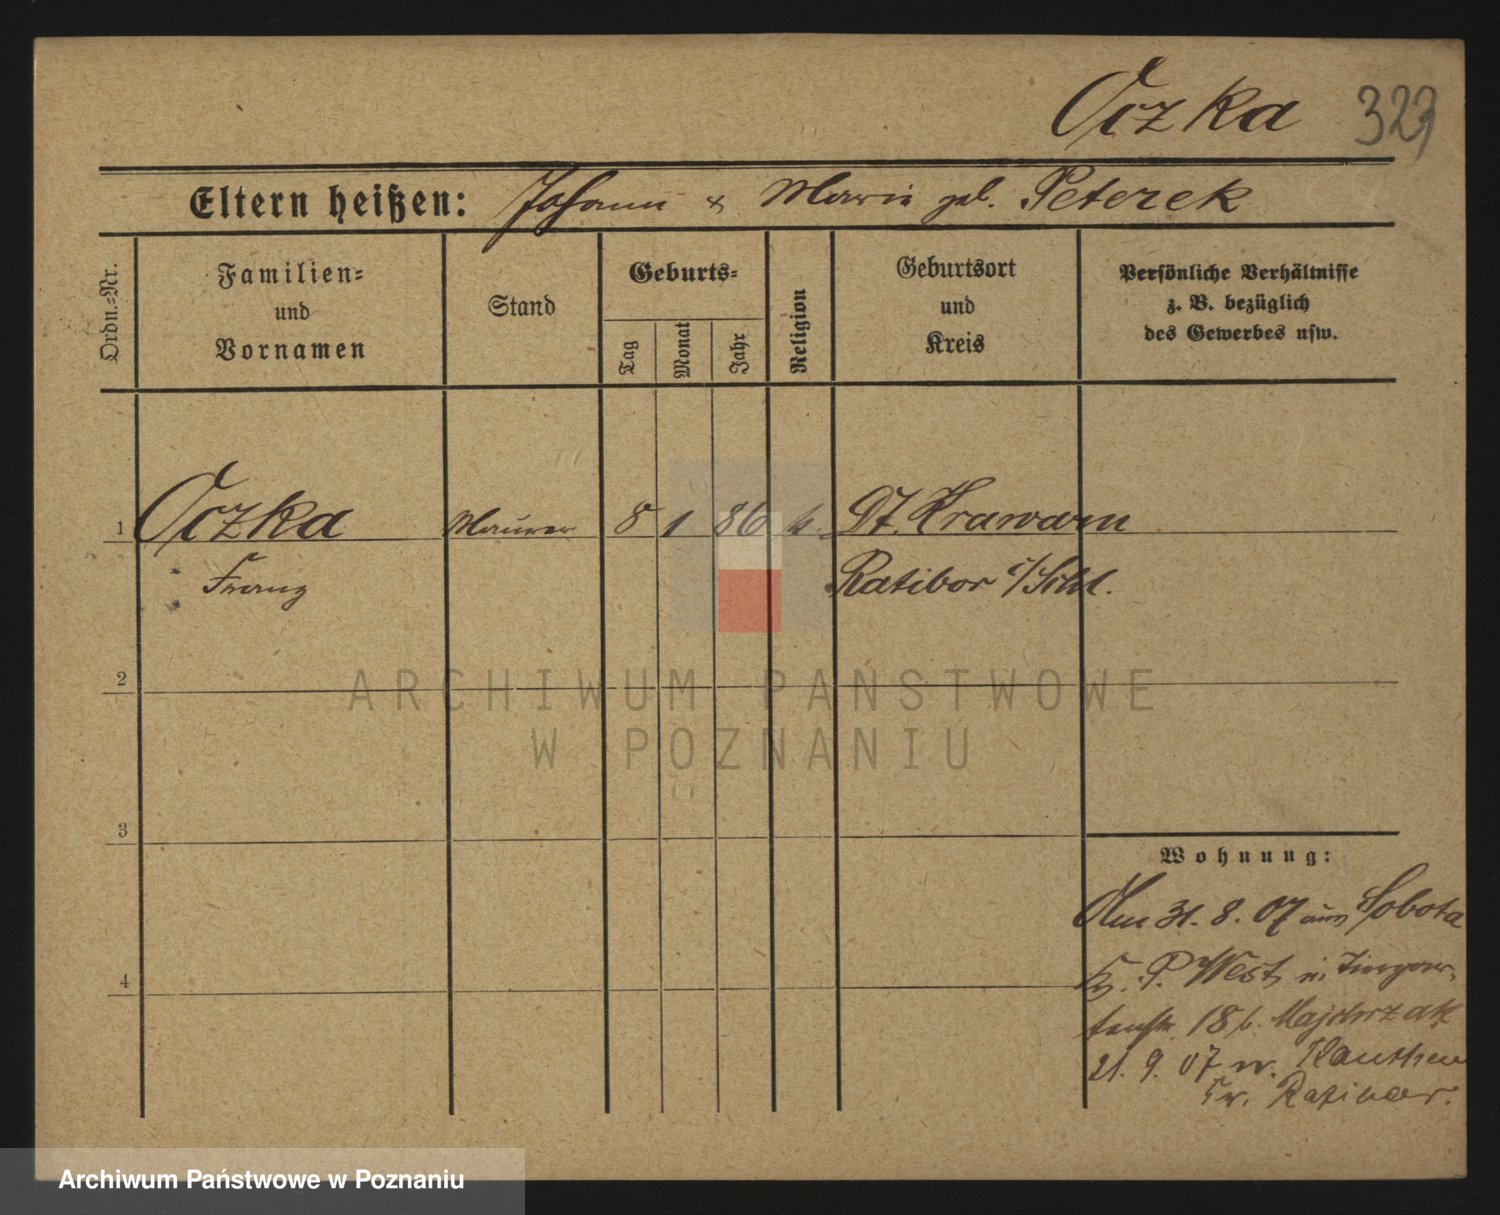 Oczka 323
Eltern heißen: Johann & Marie geb. Peterek
Ordn.-Nr.
Familien-
und
Vornamen
Stand
Geburts-
Tag
Monat
Jahr
Religion
Geburtsort
und
Kreis
Persönliche Verhältnisse
z. B. bezüglich
des Gewerbes usw.
1 Oczka Maurer 8 1 86 k. Dt. Krawarn
Franz Ratibor i/Schl.
2
3
4
Wohnung:
Am 31. 8. 07 aus Sobota
Kr. P. West, in Tiergar-
tenstr. 18 b. Majchrzak
21. 9. 07 n. Kauthen
Kr. Ratibor.
ARCHIWUM PAŃSTWOWE
W POZNANIU
Archiwum Państwowe w Poznaniu